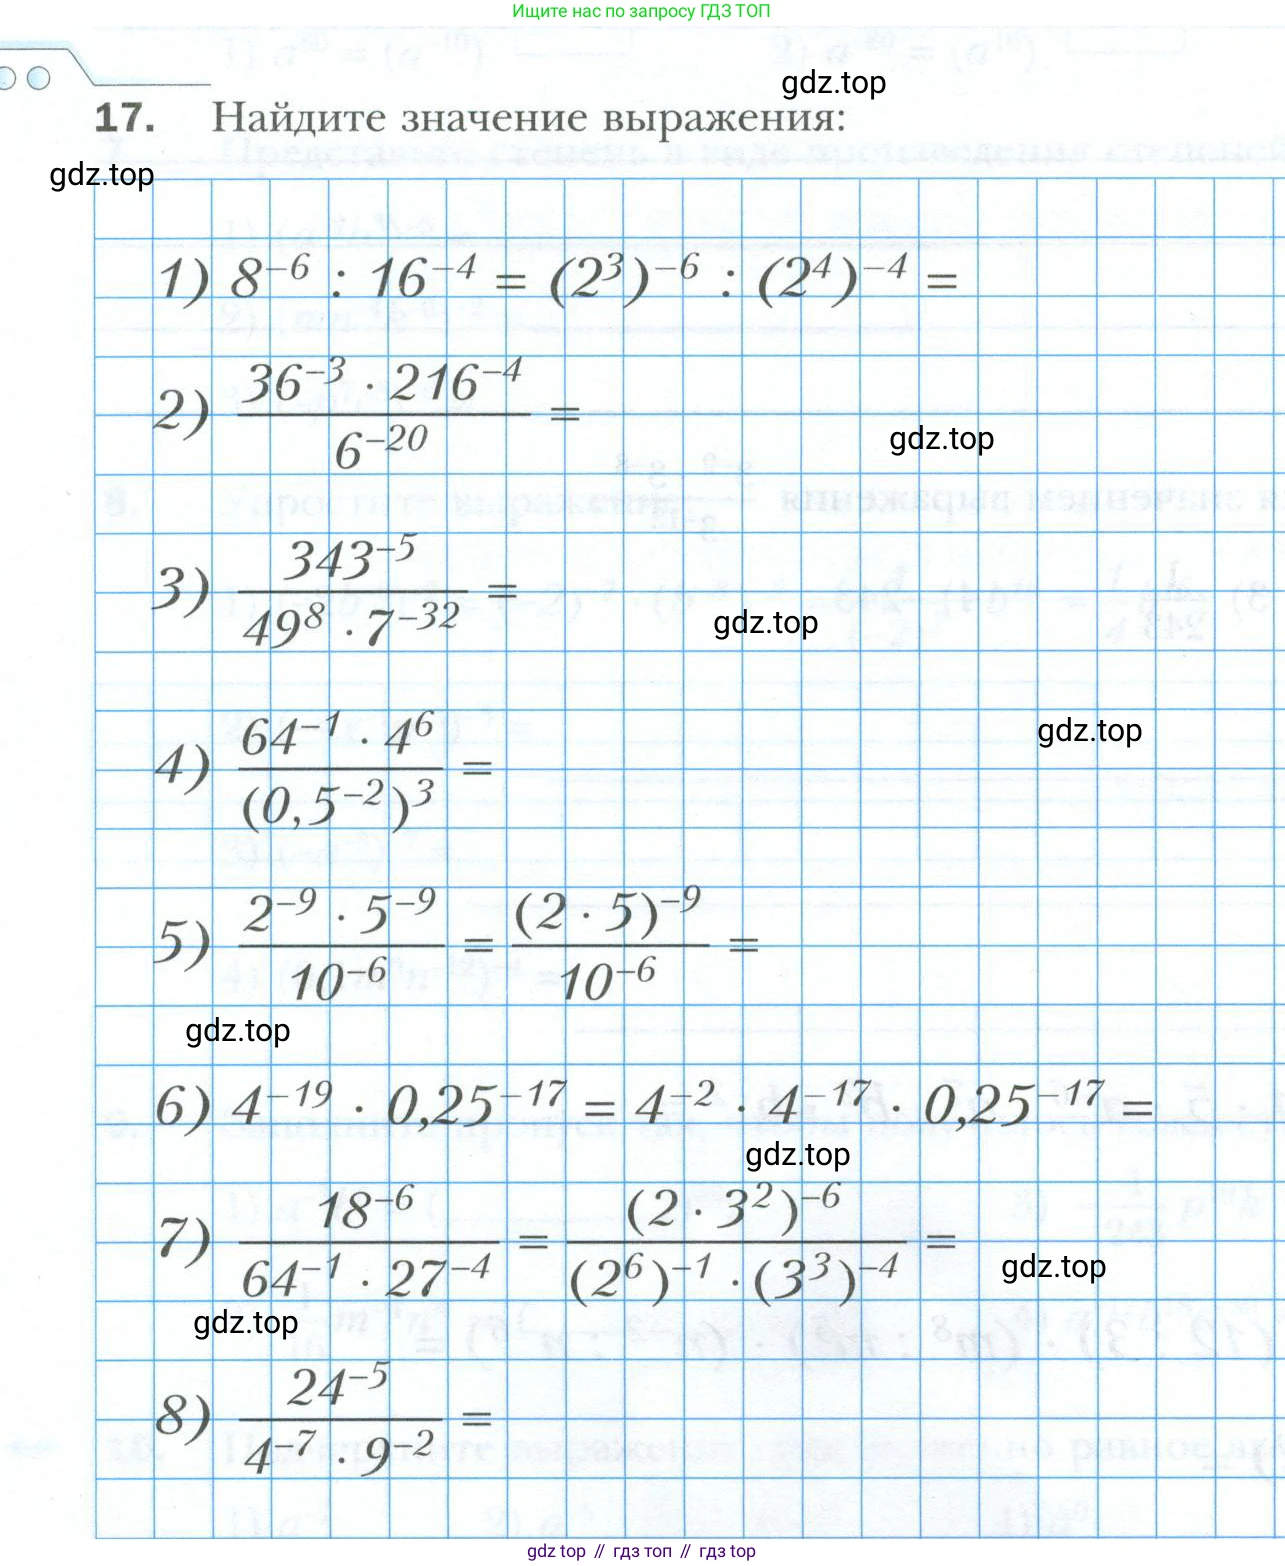 Ищите нас по запросу ГДЗ ТОП
gdz.top
17. Найдите значение выражения:
gdz.top
1) 8⁻⁶ : 16⁻⁴ = (2³)⁻⁶ : (2⁴)⁻⁴ =
2) (36⁻³ · 216⁻⁴) / 6⁻²⁰ =
gdz.top
3) 343⁻⁵ / (49⁸ · 7⁻³²) =
gdz.top
4) (64⁻¹ · 4⁶) / (0,5⁻²)³ =
gdz.top
5) (2⁻⁹ · 5⁻⁹) / 10⁻⁶ = (2 · 5)⁻⁹ / 10⁻⁶ =
gdz.top
6) 4⁻¹⁹ · 0,25⁻¹⁷ = 4⁻² · 4⁻¹⁷ · 0,25⁻¹⁷ =
gdz.top
7) 18⁻⁶ / (64⁻¹ · 27⁻⁴) = (2 · 3²)⁻⁶ / ((2⁶)⁻¹ · (3³)⁻⁴) =
gdz.top
gdz.top
8) 24⁻⁵ / (4⁻⁷ · 9⁻²) =
gdz top // гдз топ // гдз top